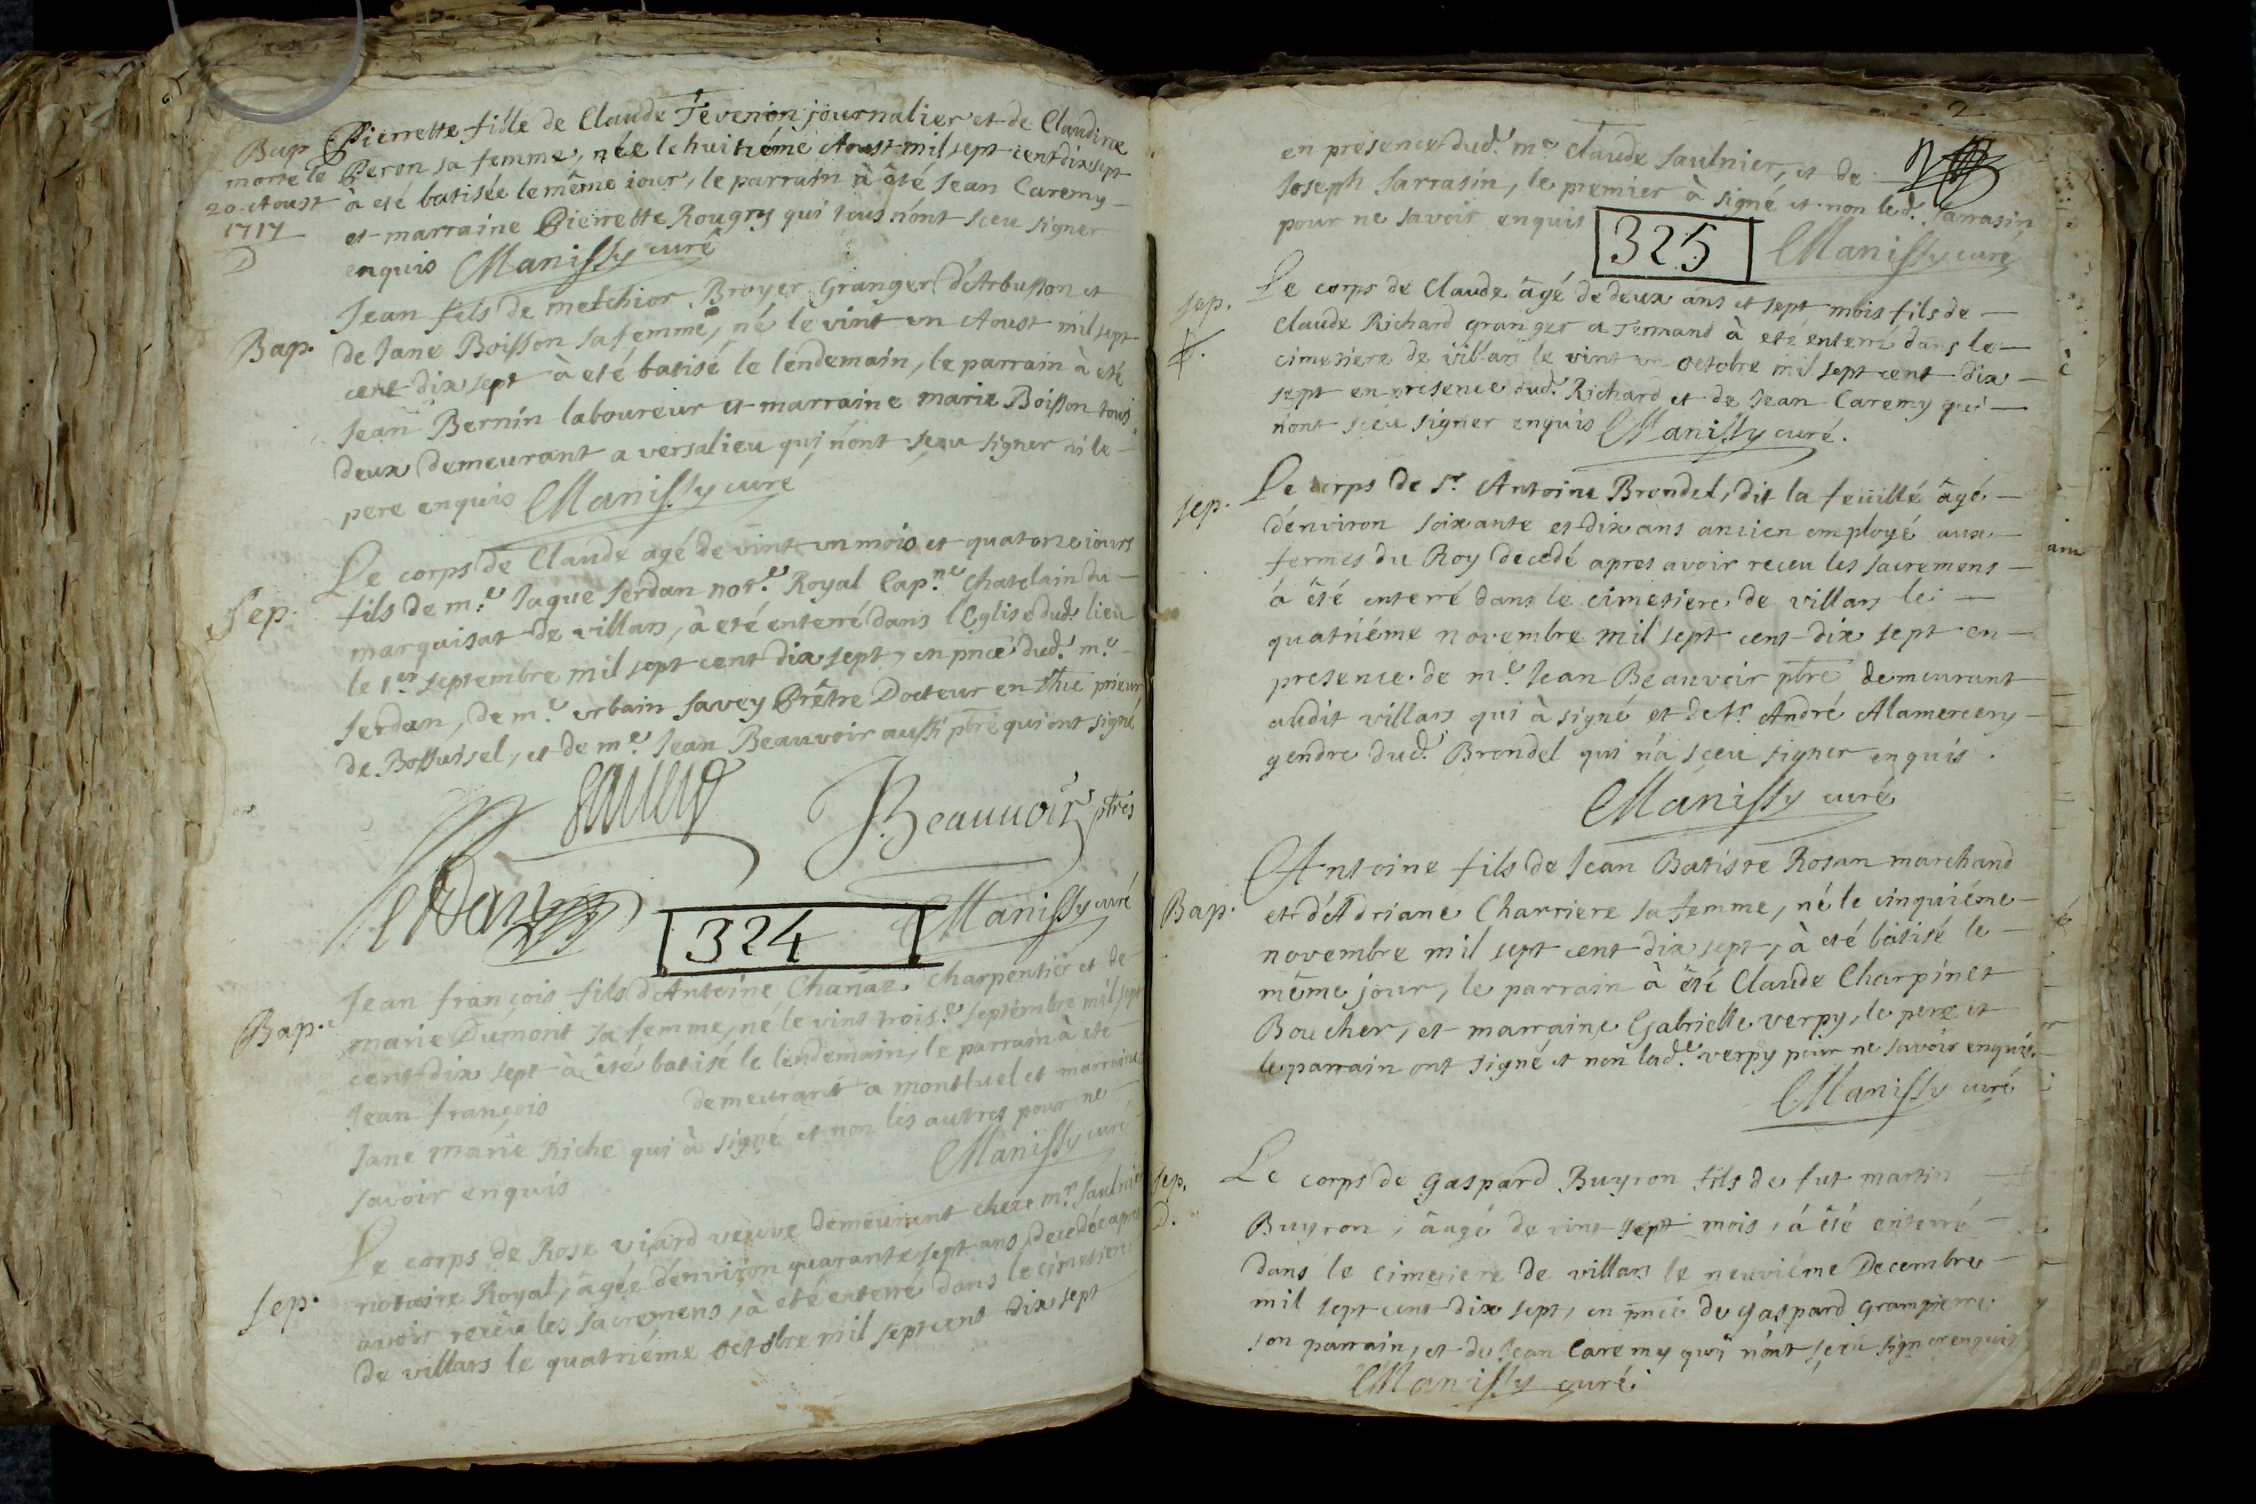 Bap
morte le
20 Aoust
1717
D
Pierrette fille de Claude Tevenon journalier et de Claudine
Peron sa femme, née le huitiéme Aoust mil sept cent dix sept
à eté batisée le même jour, le parrain à été Jean Caremy
et marraine Pierrette Rougry qui tous n'ont sceu signer
enquis Manissy curé
Bap.
Jean fils de melchior Broyer Granger d'Arbusson et
de Jane Boisson sa femme, né le vint un Aoust mil sept
cent dix sept à eté batisé le lendemain, le parrain à eté
Jean Bernin laboureur et marraine marie Boisson tous
deux demeurant a versalieu qui n'ont sceu signer ni le
pere enquis Manissy curé
Sep.
Le corps de Claude agé de vint un mois et quatorze jours
fils de m.e Jaque Serdan not.e Royal Cap.ne Chatelain du
marquisat de villars, à eté enteré dans l'Eglise dud. lieu
le 1er septembre mil sept cent dix sept, en pnce dud. m.e
Serdan, de m.e urbain Savey Prêtre Docteur en thie prieur
de Bossuisel, et de m.e Jean Beauvoir aussi pbre qui ont signé
Savey
J. Beauuoir ptres
Serdan
Manissy curé
324
Bap.
Jean françois fils d'Antoine Chanaz charpentier et de
marie Dumont sa femme, né le vint trois.e septembre mil sept
cent dix sept à été batisé le lendemain, le parrain à eté
Jean françois demeurant a montluel et marraine
Jane marie Riche qui à signé et non les autres pour ne
savoir enquis Manissy curé
Sep.
Le corps de Rose viard veuve demeurant chez m.r Saulnier
notaire Royal, âgée d'environ quarante sept ans, decedée apres
avoir receu les sacremens, à eté enterré dans le cimetiere
de villars le quatriéme octobre mil sept cent dix sept
2
en presence dud. m.e Claude Saulnier, et de
Joseph Sarrasin, le premier à signé et non led. Sarrasin
pour ne savoir enquis
325
Manissy curé
Sep.
Le corps de Claude âgé de deux ans et sept mois fils de
Claude Richard granger a Termant à eté enterré dans le
cimetiere de villars le vint un octobre mil sept cent dix
sept en presence dud. Richard et de Jean Caremy qui
n'ont sceu signer enquis Manissy curé.
Sep.
Le corps de Sr. Antoine Brondel, dit la feüillé âgé
d'environ soixante et dix ans ancien employé aux
fermes du Roy decedé apres avoir receu les sacremens
à été enterré dans le cimetiere de villars le
quatriéme novembre mil sept cent dix sept en
presence de m.e Jean Beauvoir pbre demeurant
audit villars qui à signé et de Sr André Alamercery
gendre dud. Brondel qui n'a sceu signer enquis.
Manissy curé
Bap.
Antoine fils de Jean Batiste Rosan marchand
et d'Adriane Charriere sa femme, né le cinquiéme
novembre mil sept cent dix sept, à eté batisé le
même jour, le parrain à été Claude Charpinet
Boucher, et marraine Gabrielle verpy, le pere et
le parrain ont signé et non lad.e verpy pour ne savoir enquis.
Manissy curé
Sep.
D.
Le corps de Gaspard Buyron fils de fut martin
Buyron, âagé de vint sept mois, à été enterré
dans le cimetiere de villars le neuviéme Decembre
mil sept cent dix sept, en pnce de Gaspard Grampierre
son parrain, et de Jean Caremy qui n'ont sceu signer enquis
Manissy curé.